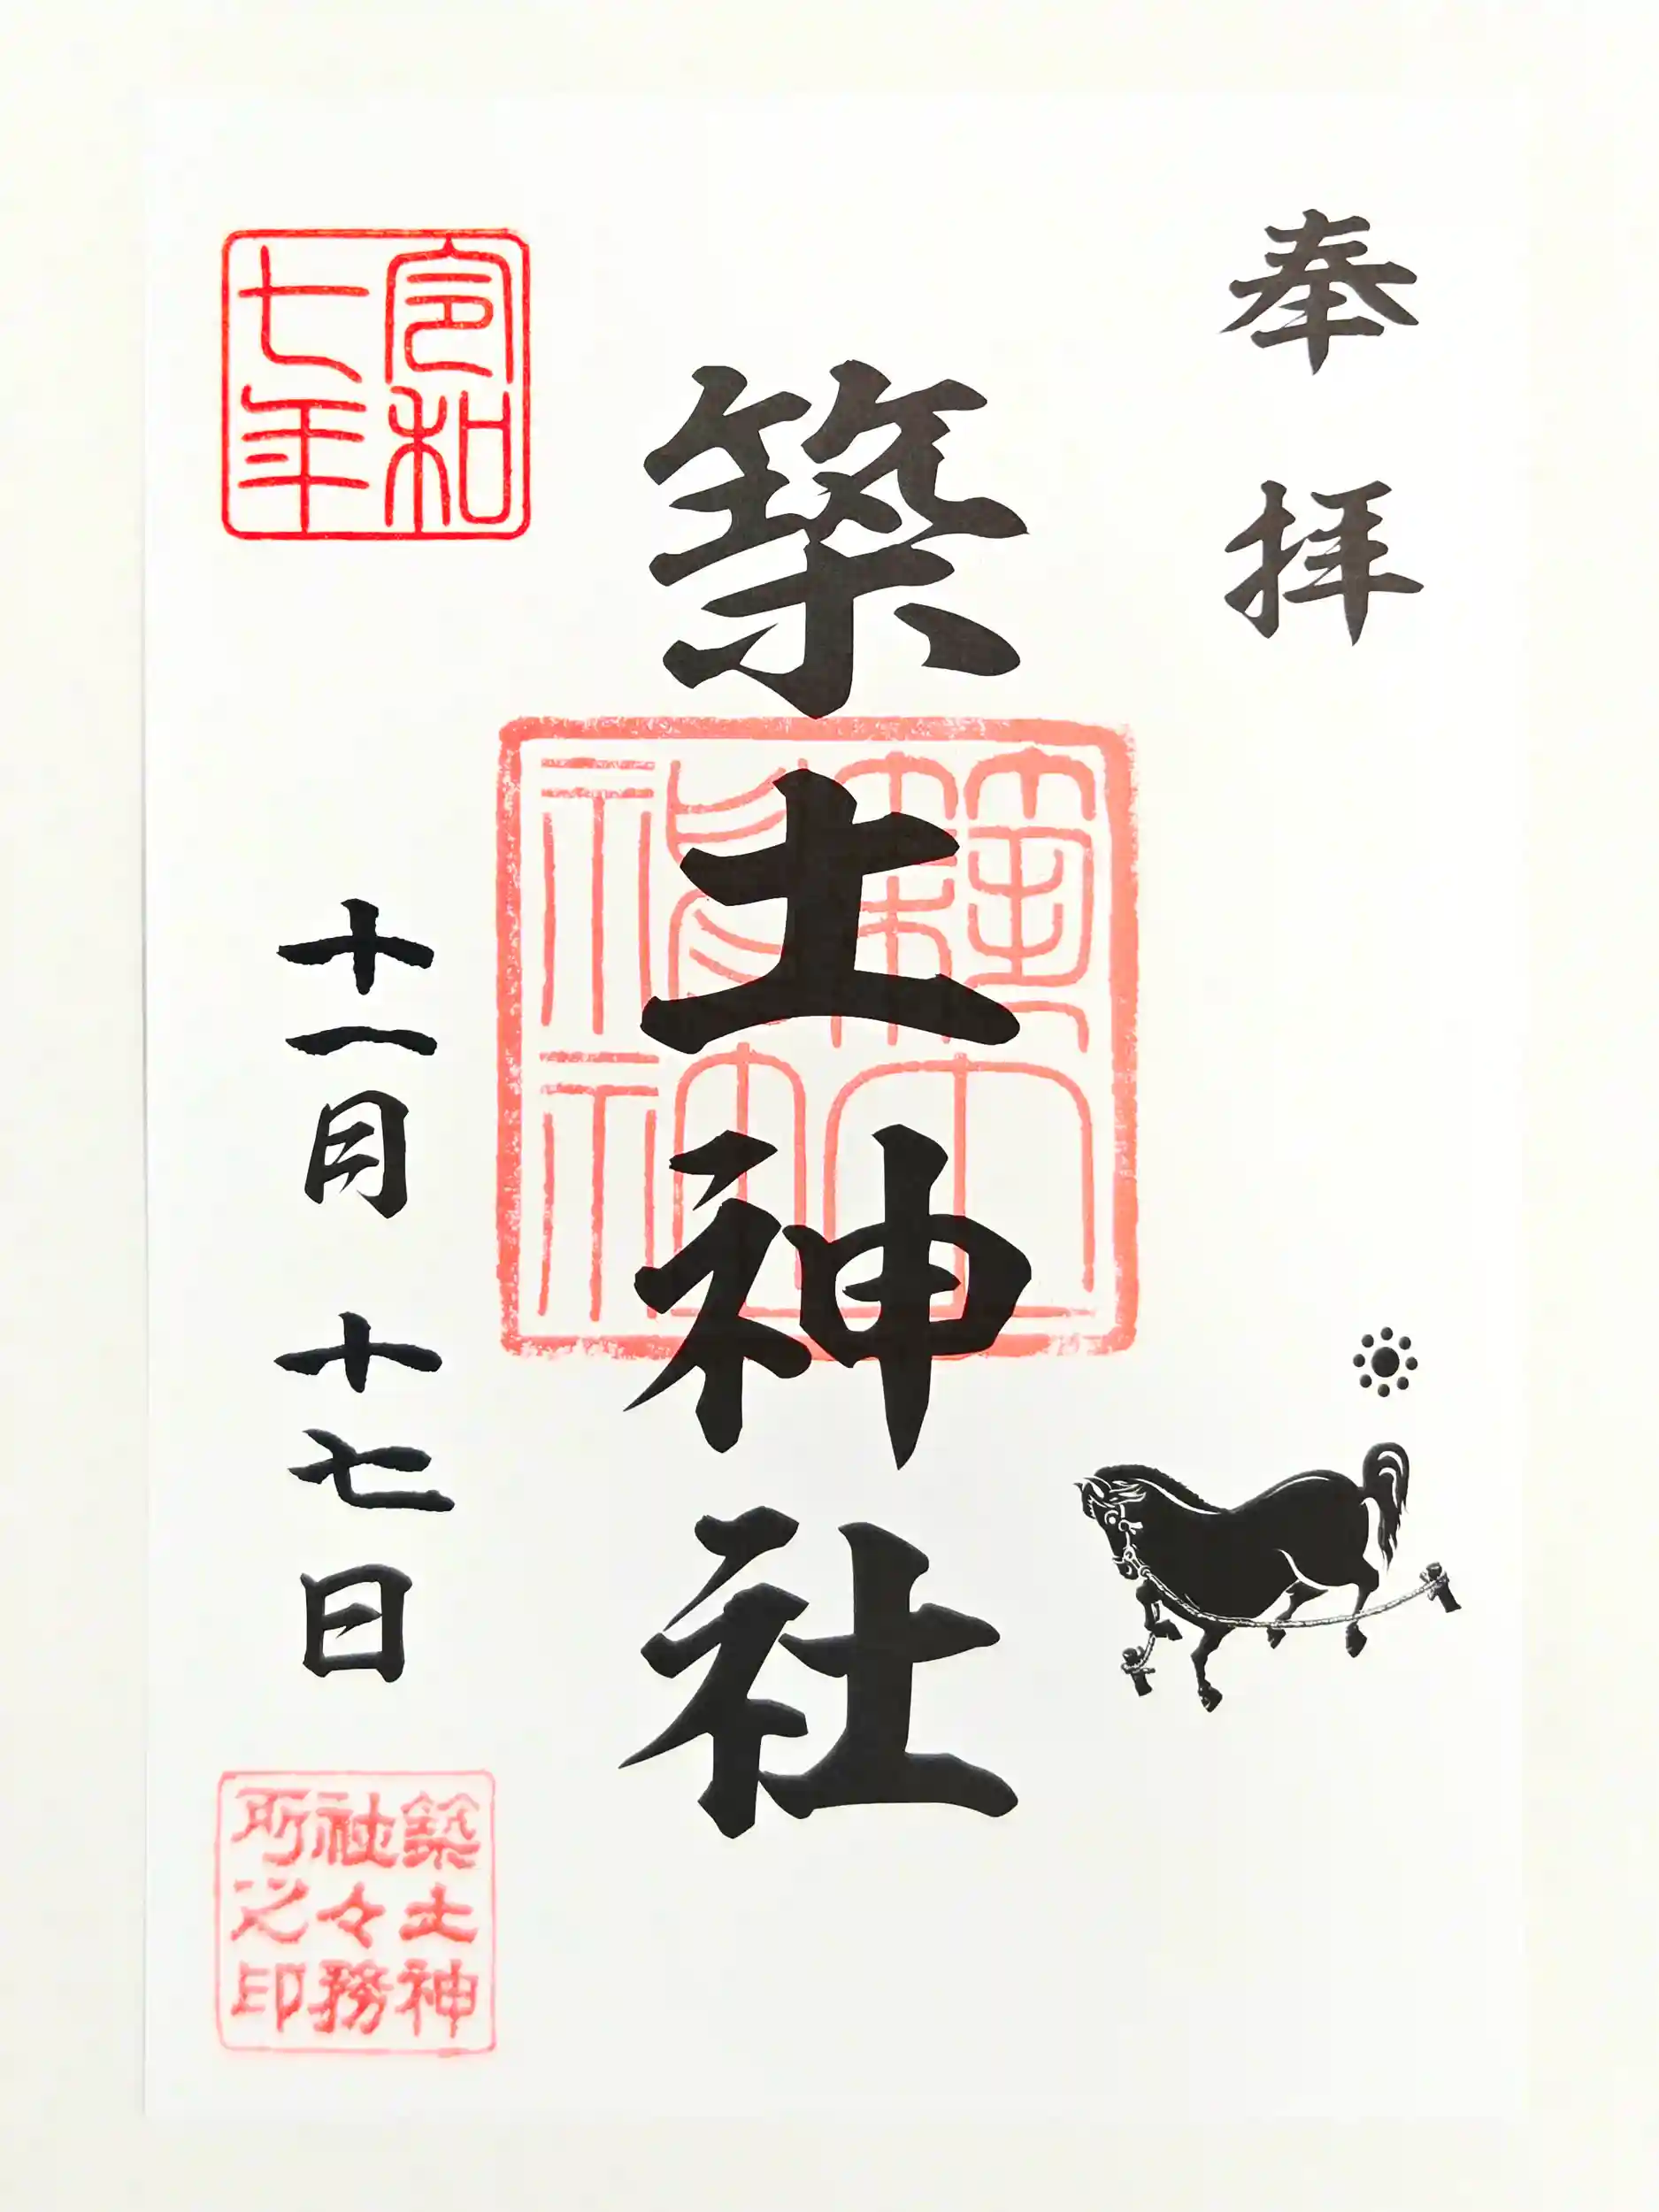 奉拝
築土神社
築土神社
令和
七年
十一月十七日
築土神
社々務
所之印